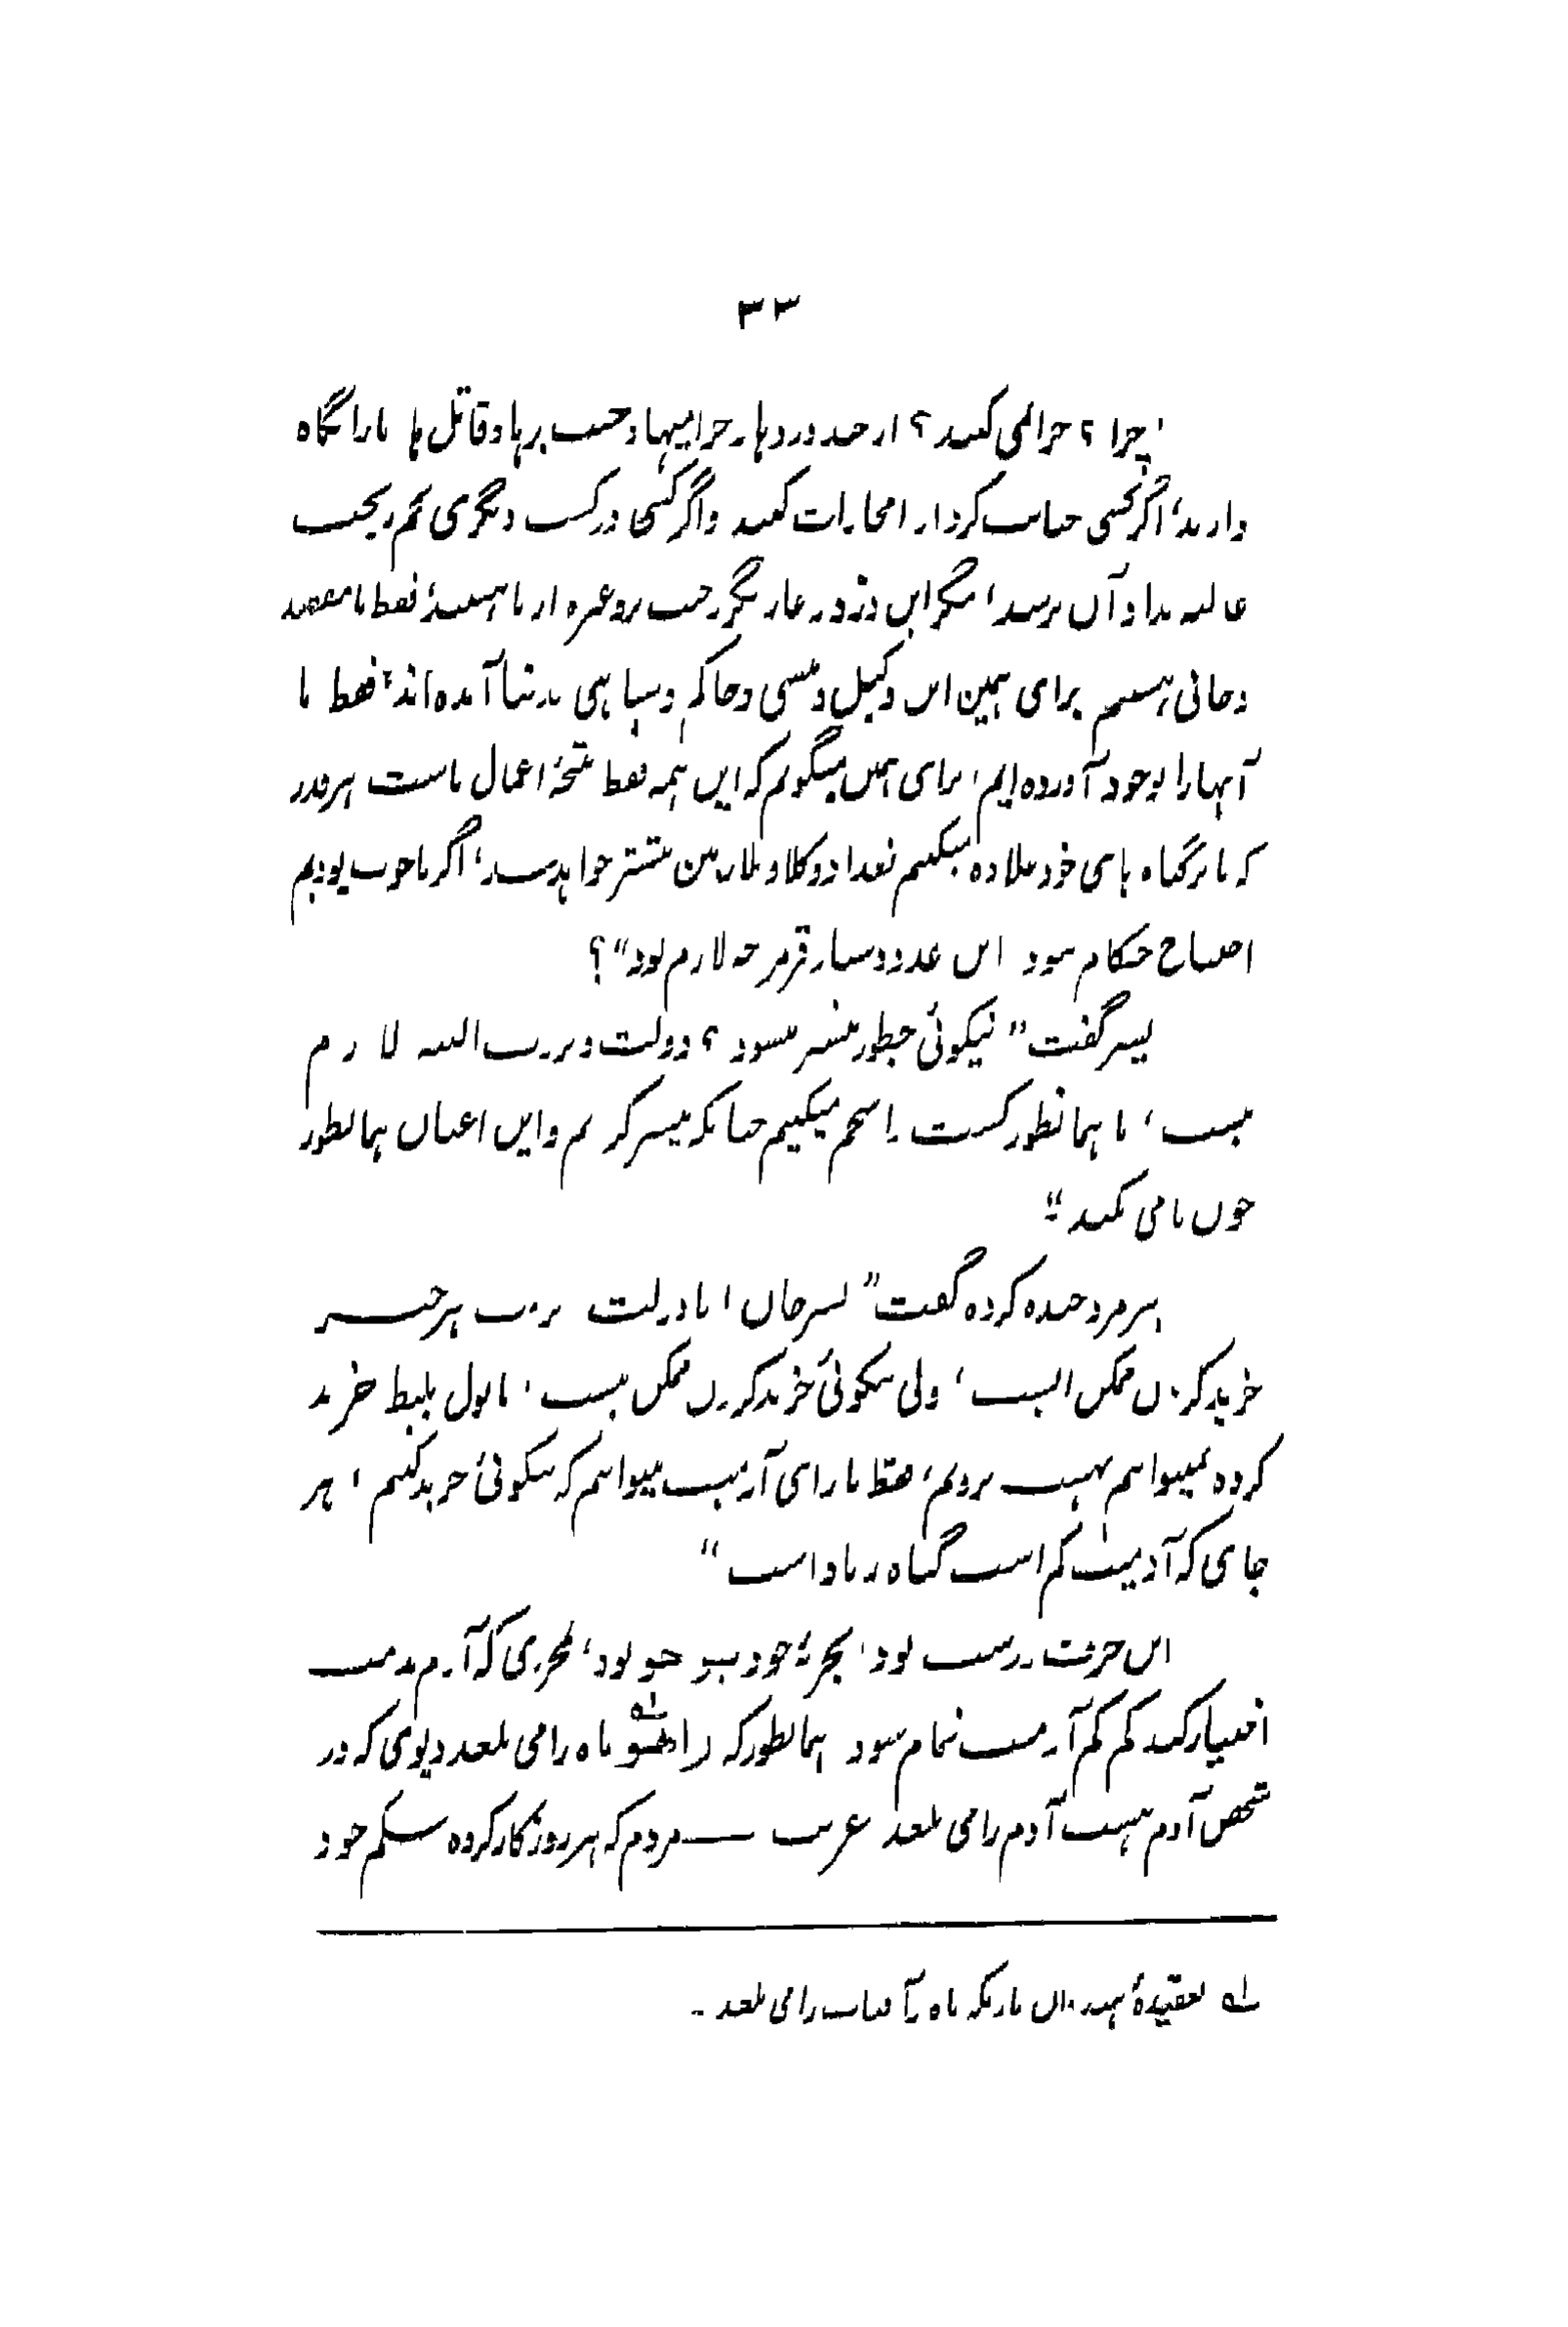 ۳۳
چرا؟ چرا نمی کنید؟ از صد دزدها، حرامیها و جیب برها و قاتل ها ما را نگاه
دارید، اگر کسی خیانت کرد او را مجازات کنید و اگر کسی در کشت دیگری تخم ریخت
بداد آن برسد، مگر این دزد و غارتگر و جیب برو غیره از ما هستند؟ فقط ما مفسد
و جانی هستیم برای همین این وکیل و منشی و حاکم و سپاهی به دنیا آمده اند، فقط ما
آنها را بوجود آورده ایم، برای همین میگویم که این همه فقط نتیجهٔ اعمال ماست هر قدر
که ما بر گناه های خود علاوه میکنیم تعداد وکلا و ملازمین بیشتر خواهد شد، اگر ما خوب بودیم
احتیاج حکام نبود این عدد و سپار قرمز چه لازم بود"؟
پسر گفت "نیکوئی چطور میسر میشود؟ دولت و ثروت البته لازم
نیست، ما همانطور کشت را سخم میکنیم چنانکه میسر کریم و این اعیان همانطور
خون ما می مکند"
پیرمرد خنده کرده گفت "پسر جان! با دولت ثروت هر چیز
خرید کردن ممکن است، ولی نیکوئی خرید کردن ممکن نیست، ما پول بلیط خرید
کرده نمیتوانیم بهشت برویم، فقط ما برای آدمیت میتوانیم که نیکوئی خرید کنیم، هر
جای که آدمیت کم است گناه زیاد است"
این حرف درست بود، تجربهٔ خود بود، فجری که آدم بدست
اختیار کند کم کم آدمیت تمام شود همانطور که راهو ماه را می بلعد دیوی که در
شخص آدم هست آدم را می بلعد غریب ــ مردم که هر روز کار کرده شکم خود
له بعقیدهٔ هندوان تاریکه ماه و آفتاب را می بلعد۔